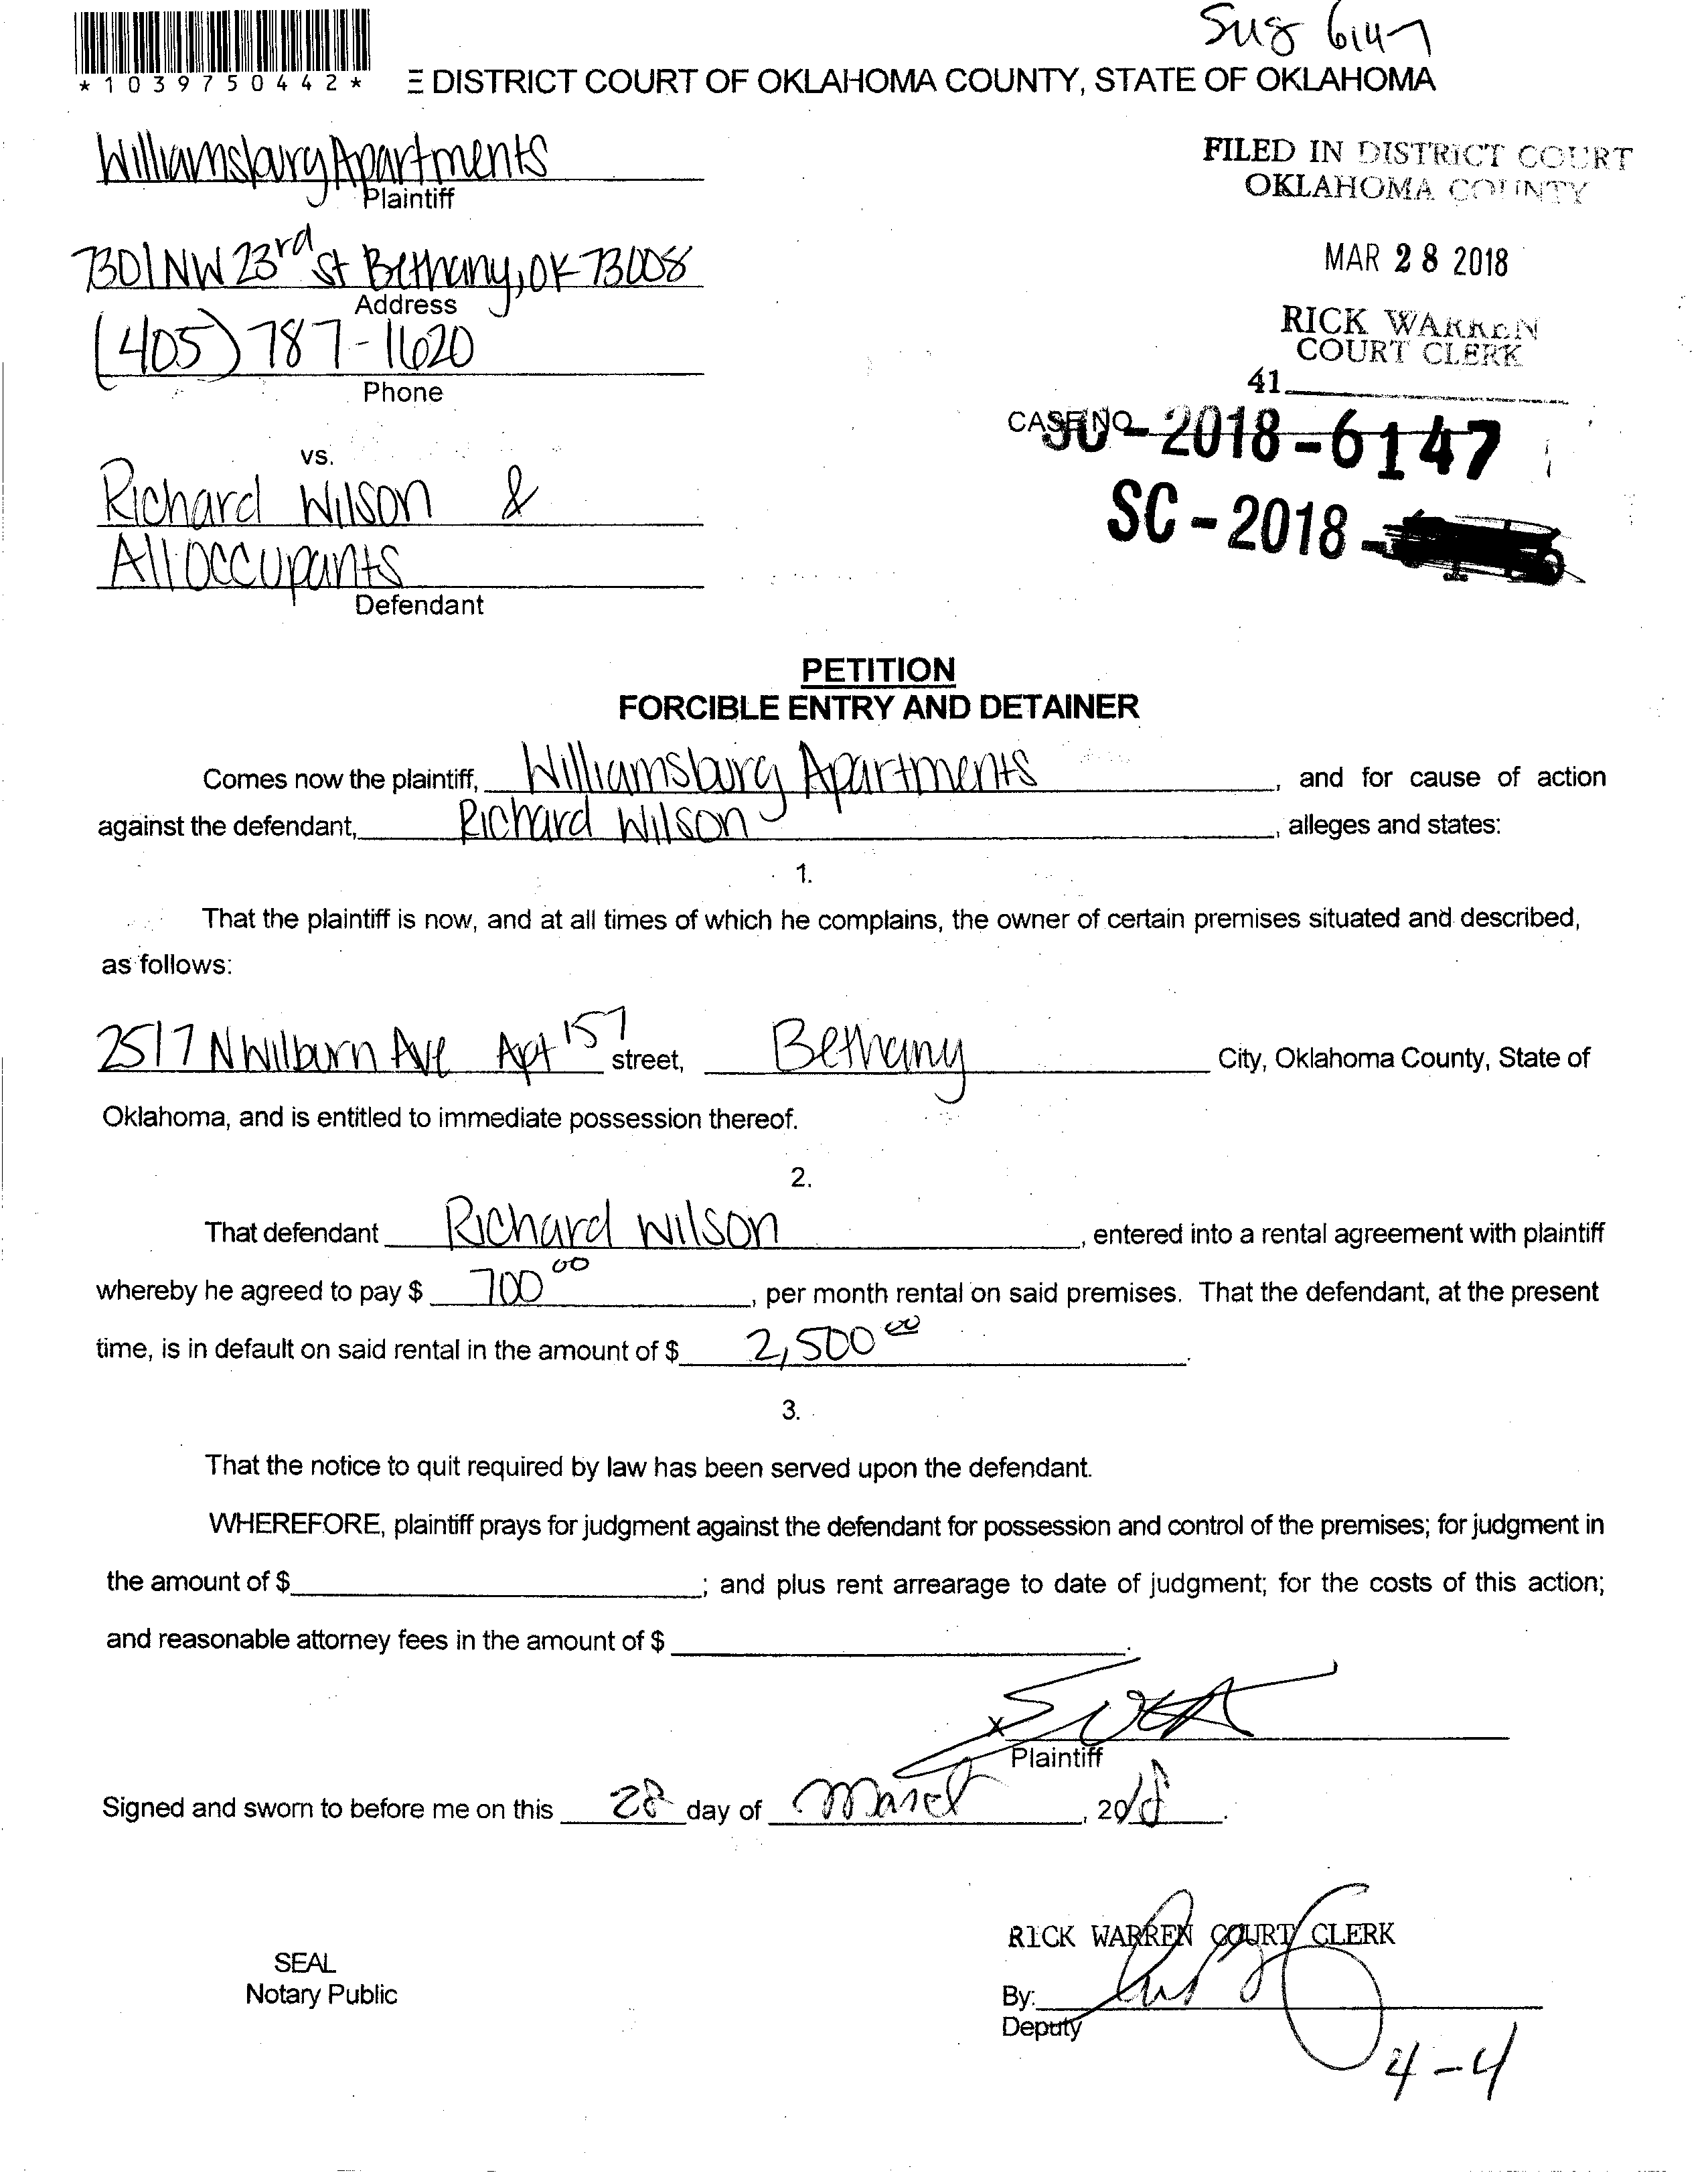 Sug 6147
*1039750442*
E DISTRICT COURT OF OKLAHOMA COUNTY, STATE OF OKLAHOMA
Williamsburg Apartments
Plaintiff
FILED IN DISTRICT COURT
OKLAHOMA COUNTY
7301 NW 23rd St Bethany, OK 73008
Address
MAR 28 2018
(405) 787-1620
Phone
RICK WARREN
COURT CLERK
41
CASE NO. 2018-6147
vs.
Richard Wilson &
SC-2018-
All Occupants
Defendant
PETITION
FORCIBLE ENTRY AND DETAINER
Comes now the plaintiff, Williamsburg Apartments, and for cause of action
against the defendant, Richard Wilson, alleges and states:
1.
That the plaintiff is now, and at all times of which he complains, the owner of certain premises situated and described,
as follows:
2517 N Wilburn Ave Apt 157 street, Bethany City, Oklahoma County, State of
Oklahoma, and is entitled to immediate possession thereof.
2.
That defendant Richard Wilson, entered into a rental agreement with plaintiff
whereby he agreed to pay $ 700 00, per month rental on said premises. That the defendant, at the present
time, is in default on said rental in the amount of $ 2,500 00.
3.
That the notice to quit required by law has been served upon the defendant.
WHEREFORE, plaintiff prays for judgment against the defendant for possession and control of the premises; for judgment in
the amount of $ ; and plus rent arrearage to date of judgment; for the costs of this action;
and reasonable attorney fees in the amount of $ .
x
Plaintiff
Signed and sworn to before me on this 28 day of March, 2018.
RICK WARREN COURT CLERK
SEAL
Notary Public
By:
Deputy
4-4